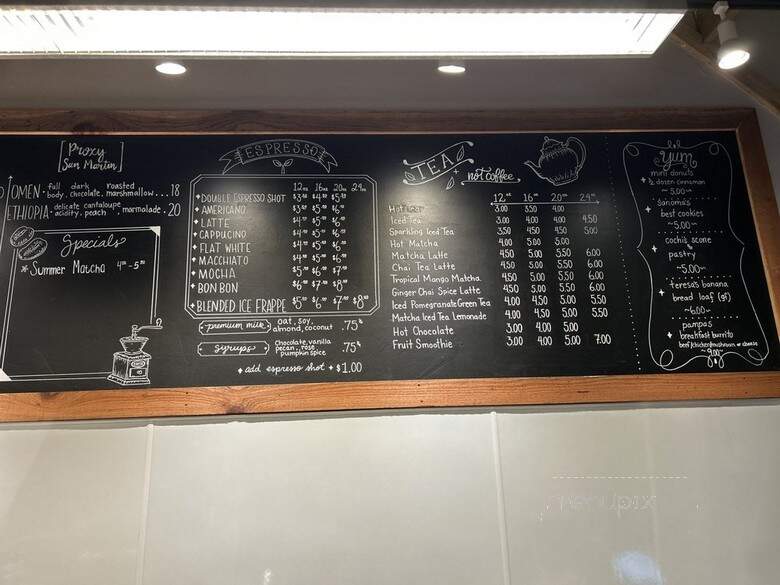 [Proxy
San Martin]
OMEN· full dark roasted
body, chocolate, marshmallow...18
ETHIOPIA· delicate cantaloupe
acidity, peach marmalade . 20
Specials
* Summer Matcha
ESPRESSO
12 oz 16 oz 20 oz 24 oz
DOUBLE ESPRESSO SHOT
AMERICANO
LATTE
CAPPUCINO
FLAT WHITE
MACCHIATO
MOCHA
BON BON
BLENDED ICE FRAPPE
premium milk oat, soy,
almond, coconut .75¢
syrups Chocolate, vanilla
pecan, rose,
pumpkin spice .75¢
add espresso shot + $1.00
TEA not coffee
12" 16" 20" 24"
Hot Tea 3.00 3.50 4.00
Iced Tea 3.00 4.00 4.00 4.50
Sparkling Iced Tea 3.50 4.50 4.50 5.00
Hot Matcha 4.00 5.00 5.00
Matcha Latte 4.50 5.00 5.50 6.00
Chai Tea Latte 4.50 5.00 5.50 6.00
Tropical Mango Matcha 4.50 5.00 5.50 6.00
Ginger Chai Spice Latte 4.50 5.00 5.50 6.00
Iced Pomegranate Green Tea 4.00 4.50 5.00 5.50
Matcha Iced Tea Lemonade 4.00 4.50 5.00 5.50
Hot Chocolate 3.00 4.00 5.00
Fruit Smoothie 3.00 4.00 5.00 7.00
yum
mini donuts
½ dozen cinnamon
~5.00~
Sonoma's
best cookies
~5.00~
cochi's scone
pastry
~5.00~
teresa's banana
bread loaf (gf)
~6.00~
pampas
breakfast burrito
beef/chicken/mushroom or cheese
~9.00~
menupix